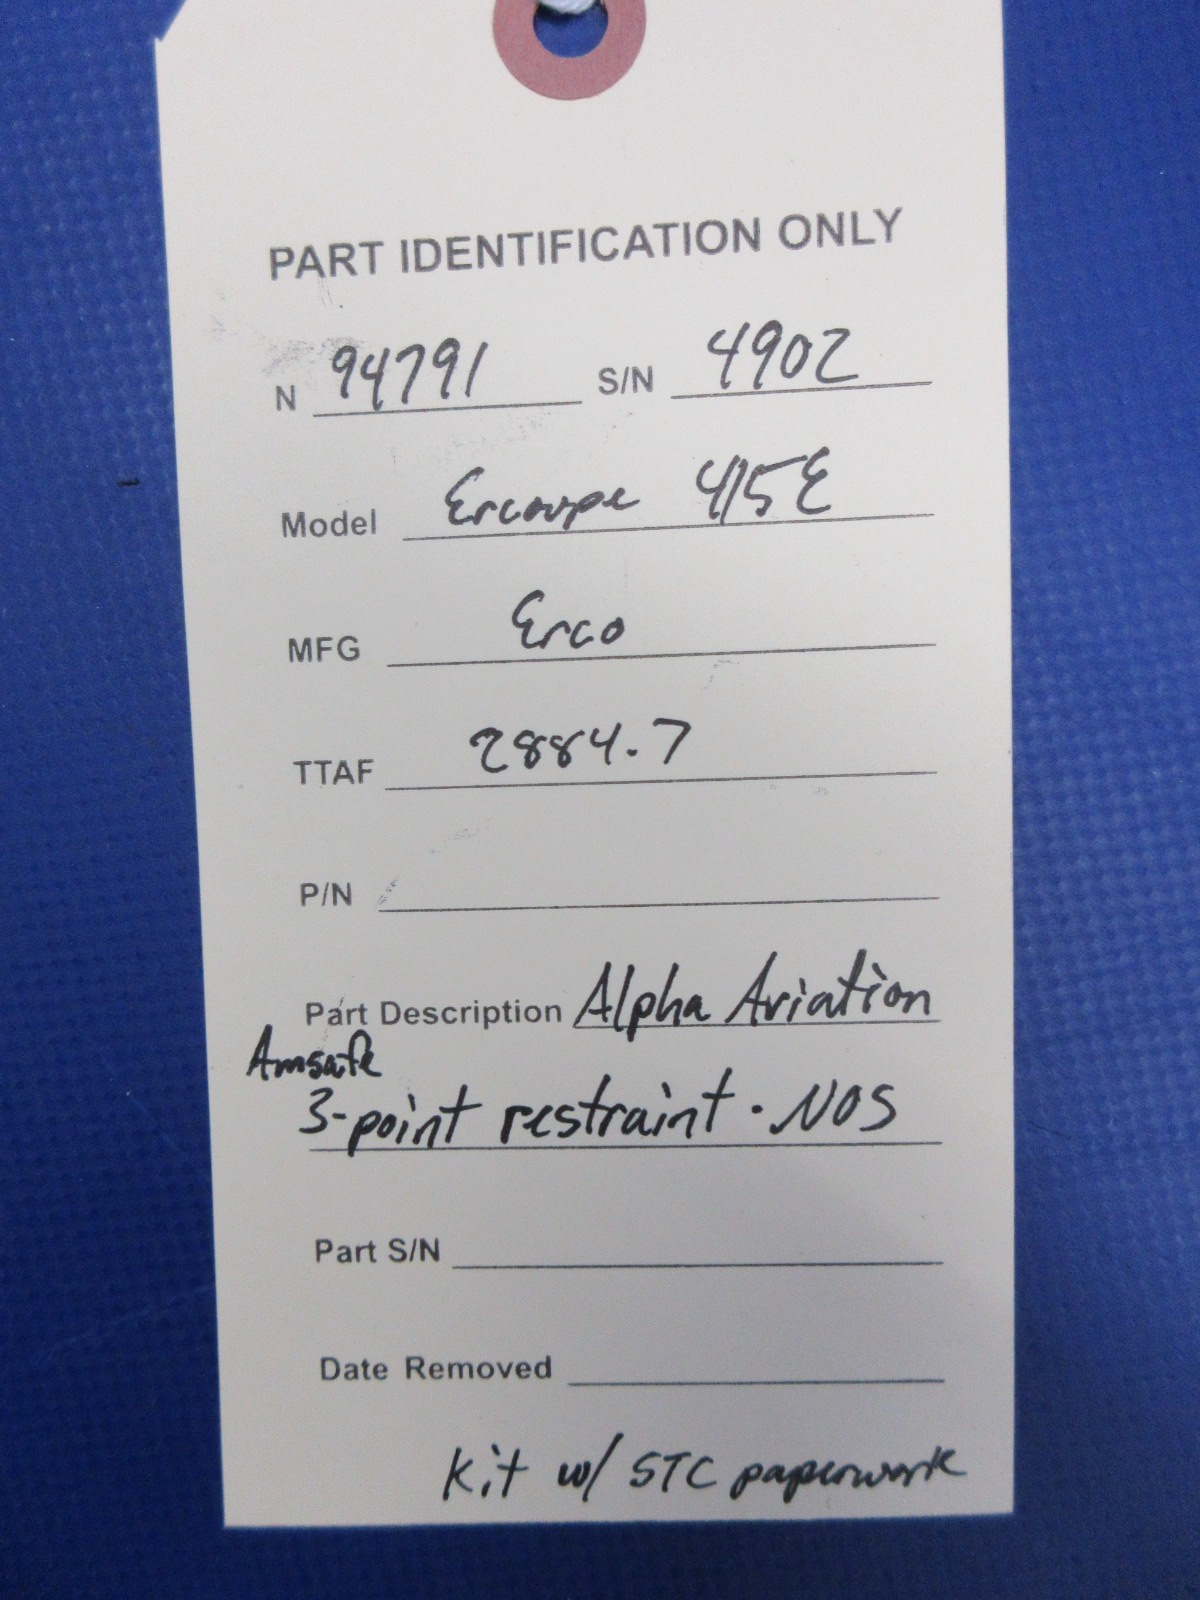 PART IDENTIFICATION ONLY
N 94791 S/N 4902
Model Ercoupe 415E
MFG Erco
TTAF 2884.7
P/N
Part Description Alpha Aviation
Amsafe
3-point restraint. NOS
Part S/N
Date Removed
Kit w/ STC paperwork